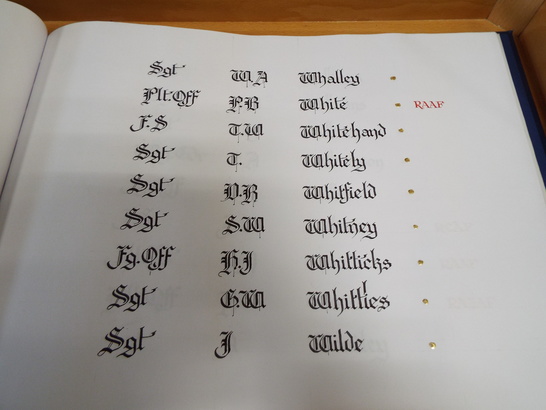 Sgt W.A Whalley
Plt.Off P.B White RAAF
F.S T.W Whitehand
Sgt T. Whitely
Sgt D.B Whitfield
Sgt S.W Whitney
Fg.Off H.J Whitticks
Sgt G.W Whitties
Sgt J Wilde